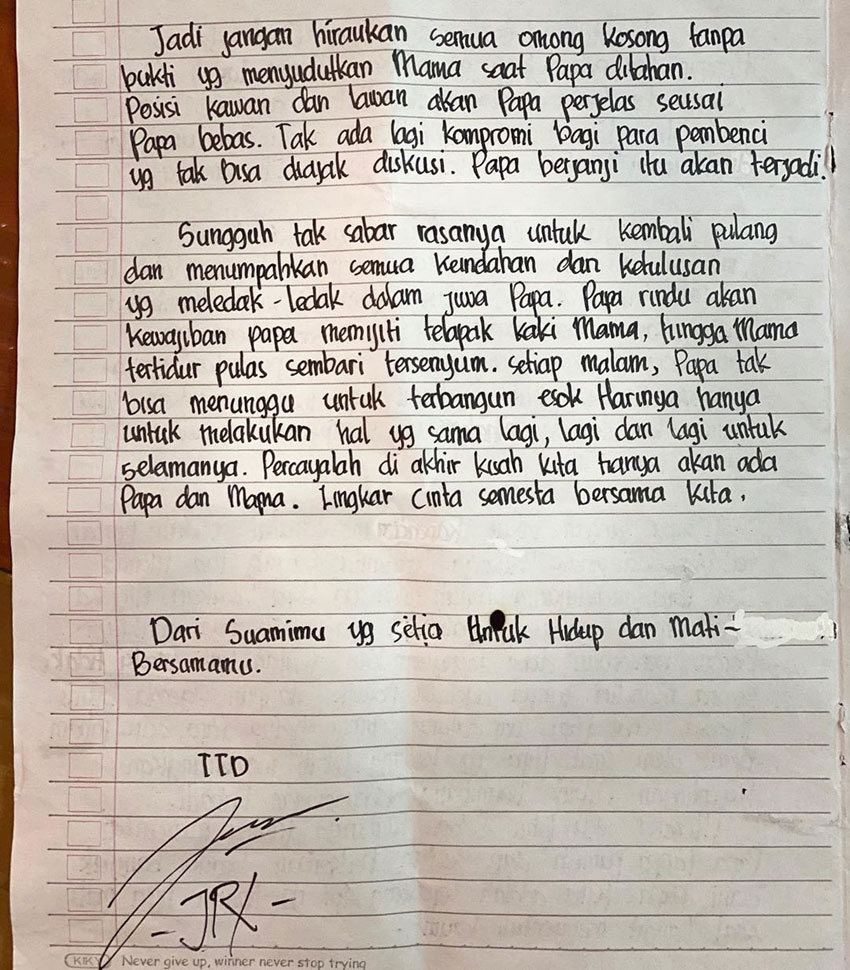 Jadi jangan hiraukan semua omong kosong tanpa
bukti yg menyudutkan Mama saat Papa ditahan.
Posisi kawan dan lawan akan Papa perjelas seusai
Papa bebas. Tak ada lagi kompromi bagi para pembenci
yg tak bisa diajak diskusi. Papa berjanji itu akan terjadi!
Sungguh tak sabar rasanya untuk kembali pulang
dan menumpahkan semua keindahan dan ketulusan
yg meledak-ledak dalam jiwa Papa. Papa rindu akan
kewajiban papa memijiti telapak kaki Mama, hingga Mama
tertidur pulas sembari tersenyum. setiap malam, Papa tak
bisa menunggu untuk terbangun esok Harinya hanya
untuk melakukan hal yg sama lagi, lagi dan lagi untuk
selamanya. Percayalah di akhir kisah kita hanya akan ada
Papa dan Mama. Lingkar Cinta semesta bersama kita.
Dari Suamimu yg setia Untuk Hidup dan Mati~
Bersamamu.
TTD
-JRX-
KIKY Never give up, winner never stop trying